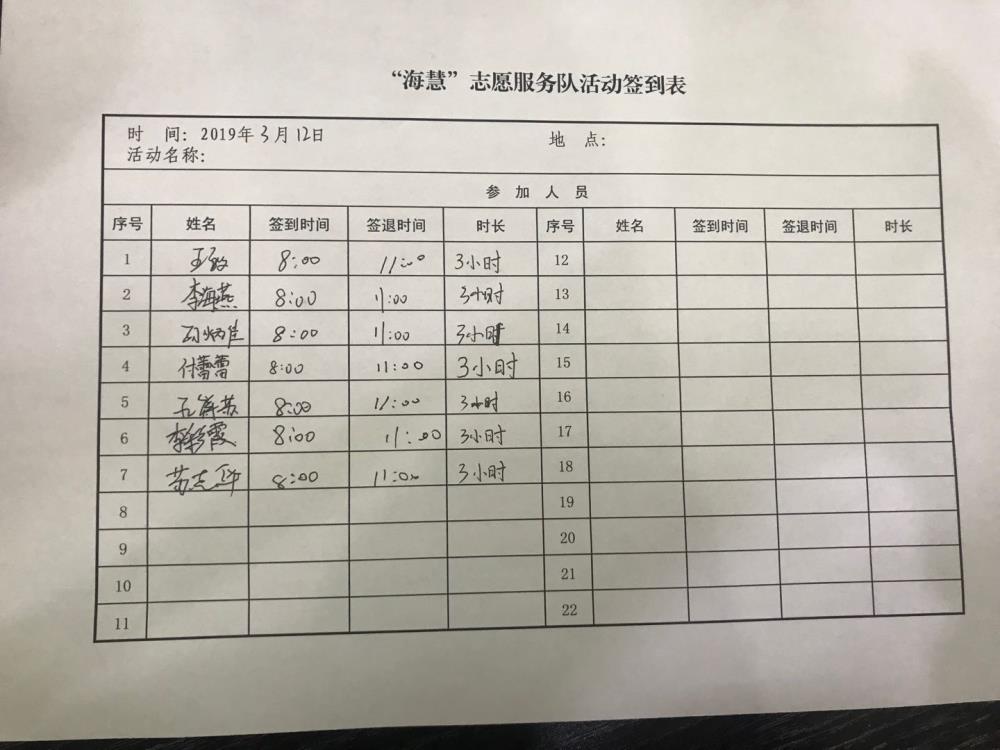 “海慧”志愿服务队活动签到表
时 间：2019年3月12日 地 点：
活动名称：
参 加 人 员
序号 姓名 签到时间 签退时间 时长 序号 姓名 签到时间 签退时间 时长
1 王敏 8:00 11:00 3小时 12
2 李海燕 8:00 11:00 3小时 13
3 8:00 11:00 3小时 14
4 付蕾蕾 8:00 11:00 3小时 15
5 8:00 11:00 3小时 16
6 8:00 11:00 3小时 17
7 苏志华 8:00 11:00 3小时 18
8 19
9 20
10 21
11 22